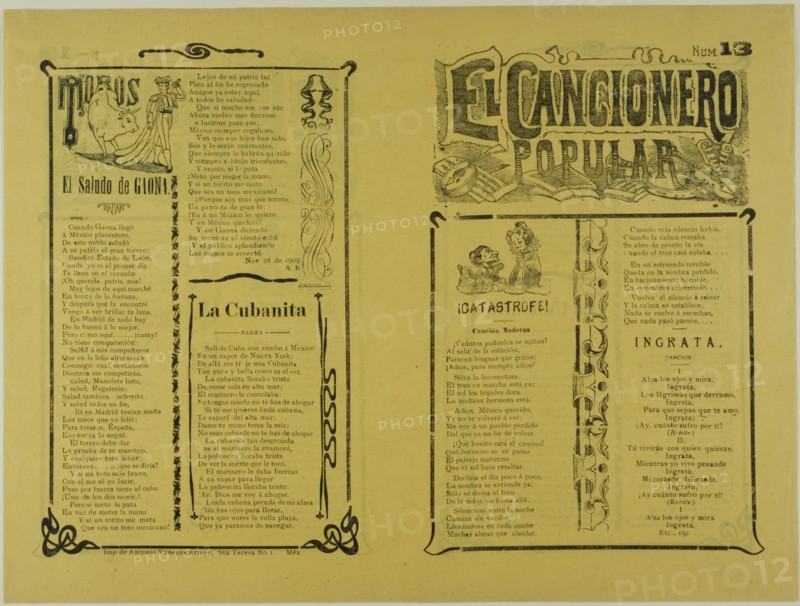 TOROS
El Saludo de GAONA
Cuando Gaona llegó
A México placentero,
De este modo saludó
A su patria el gran torero:
Bendito Estado de León,
Cuando yo vi el primer día
Te llevo en el corazón
¡Oh querida patria mía!
Muy lejos de aquí marché
En busca de la fortuna,
Y después que la encontré
Vengo á ver brillar tu luna.
En Madrid de todo hay
De lo bueno á lo mejor,
Pero como aquí...... ¡caray!
No tiene comparación.
Salud á mis compañeros
Que en la lidia
Conmigo, cual verdaderos
Diestros me
Salud, Manolete listo,
Y salud, Regaterín:
Salud también
Y salud todos en fin.
Allá en Madrid tenían maña
Los toros que yo lidié;
Para toreros, España,
Eso nunca lo negué.
El torero debe dar
La prueba de su maestro,
Y cualquier toro lidiar;
Entonces...... ¡que se diría!
Y si un toro sale bravo,
Con el me só yo lucir,
Pues por fuerza tiene al cabo
¡Uno de los dos morir!
Pero si meto la pata
En vez de meter la mano
Y si un torito me mata...
Que sea un toro mexicano!
Lejos de mi patria fuí
Pero al fin he regresado
Amigos ya estoy aquí,
A todos he saludado.
Que si mucho me
Ahora vuelvo más decoroso
á lucirme para que,
México siempre orgulloso,
Vea que sus hijos han sido,
Son y le serán constantes,
Que siempre le habrán querido
Y siempre saldrán triunfantes,
Y repito, si la pata
¡Meto por meter la mano,
Y si un torito me mata......
Que sea un toro mexicano!
¡Porque soy más que torero,
Un patriota de gran fé:
¡Yo á mi México lo quiero
Y en México quedaré!
Y así Gaona diciendo
Su montera al viento echó
Y el público aplaudiendo
Las manos se reventó.
Nov 28 de 1909
A. E
La Cubanita
DANZA
Salí de Cuba con rumbo á México
En un vapor de Nueva York;
De allá me traje una Cubanita
Tan pura y bella como es el sol.
La cubanita lloraba triste
De verse sola en alta mar;
El marinero la consolaba:
No tengas miedo no te has de ahogar
Si te me quieres linda cubana,
Te sacaré del alta mar;
Dame tu mano toma la mía;
No seas cobarde no te has de ahogar
La cubanita tan desgraciada
se el marinero la enamoró,
La pobrecita lloraba triste
De ver la suerte que le tocó.
El marinero le daba fuerzas
A su vapor para llegar
La pobrecita lloraba triste:
¡Ay, Dios me voy á ahogar.
Linda cubana prenda de mi alma
Alza tus ojos para llorar,
Para que mires la bella playa,
Que ya paramos de navegar.
Imp de Antonio Vanegas Arroyo, Sta Teresa No. 1. Méx
NUM 13
EL CANCIONERO
POPULAR
¡CATASTROFE!
Canción Moderna
¡Cuántos pañuelos se agitan!
Al salir de la estación,
Parecen lenguas que gritan;
¡Adios, para siempre adios!
Silva la locomotora,
El tren en marcha está ya;
El sol los trigales dora
La mañana hermosa está.
Adios, México querido,
Yo no te volveré á ver;
Me voy á un pueblo perdido
Del que yo no he de volver
¡Qué bonito está el camino!
Qué hermoso se vé pasar
El paisaje matutino
Que el sol hace resaltar.
Declina el día poco á poco,
La sombra se extiende ya;
Sólo se divisa el foco
De la máquina hasta allá.
Silencioso entra la noche
Camina sin vacilar,
Llevándose en cada coche
Muchas almas que olvidar.
Cuando más silencio había,
Cuando la calma reinaba
Se abre de pronto la vía
Cuando el tren casi volaba....
En un estruendo terrible
Queda en la sombra perdido,
En hacinamiento horrible,
En escombros convertido....
Vuelve el silencio á reinar
Y la calma se establece;
Nada se vuelve á escuchar,
Que nada pasó parece....
INGRATA.
CANCION
I
Alza los ojos y mira,
Ingrata,
Las lágrimas que derramo,
Ingrata,
Para que sepas que te amo,
Ingrata;
¡Ay, cuánto sufro por ti!
(Rondó.)
II.
Tú vivirás con quien quieras,
Ingrata,
Mientras yo vivo penando
Ingrata,
Mi corazón delirando
Ingrata,
¡Ay, cuánto sufro por ti!
(Rondó.)
I
Alza los ojos y mira
Ingrata,
Etc., etc
PHOTO12